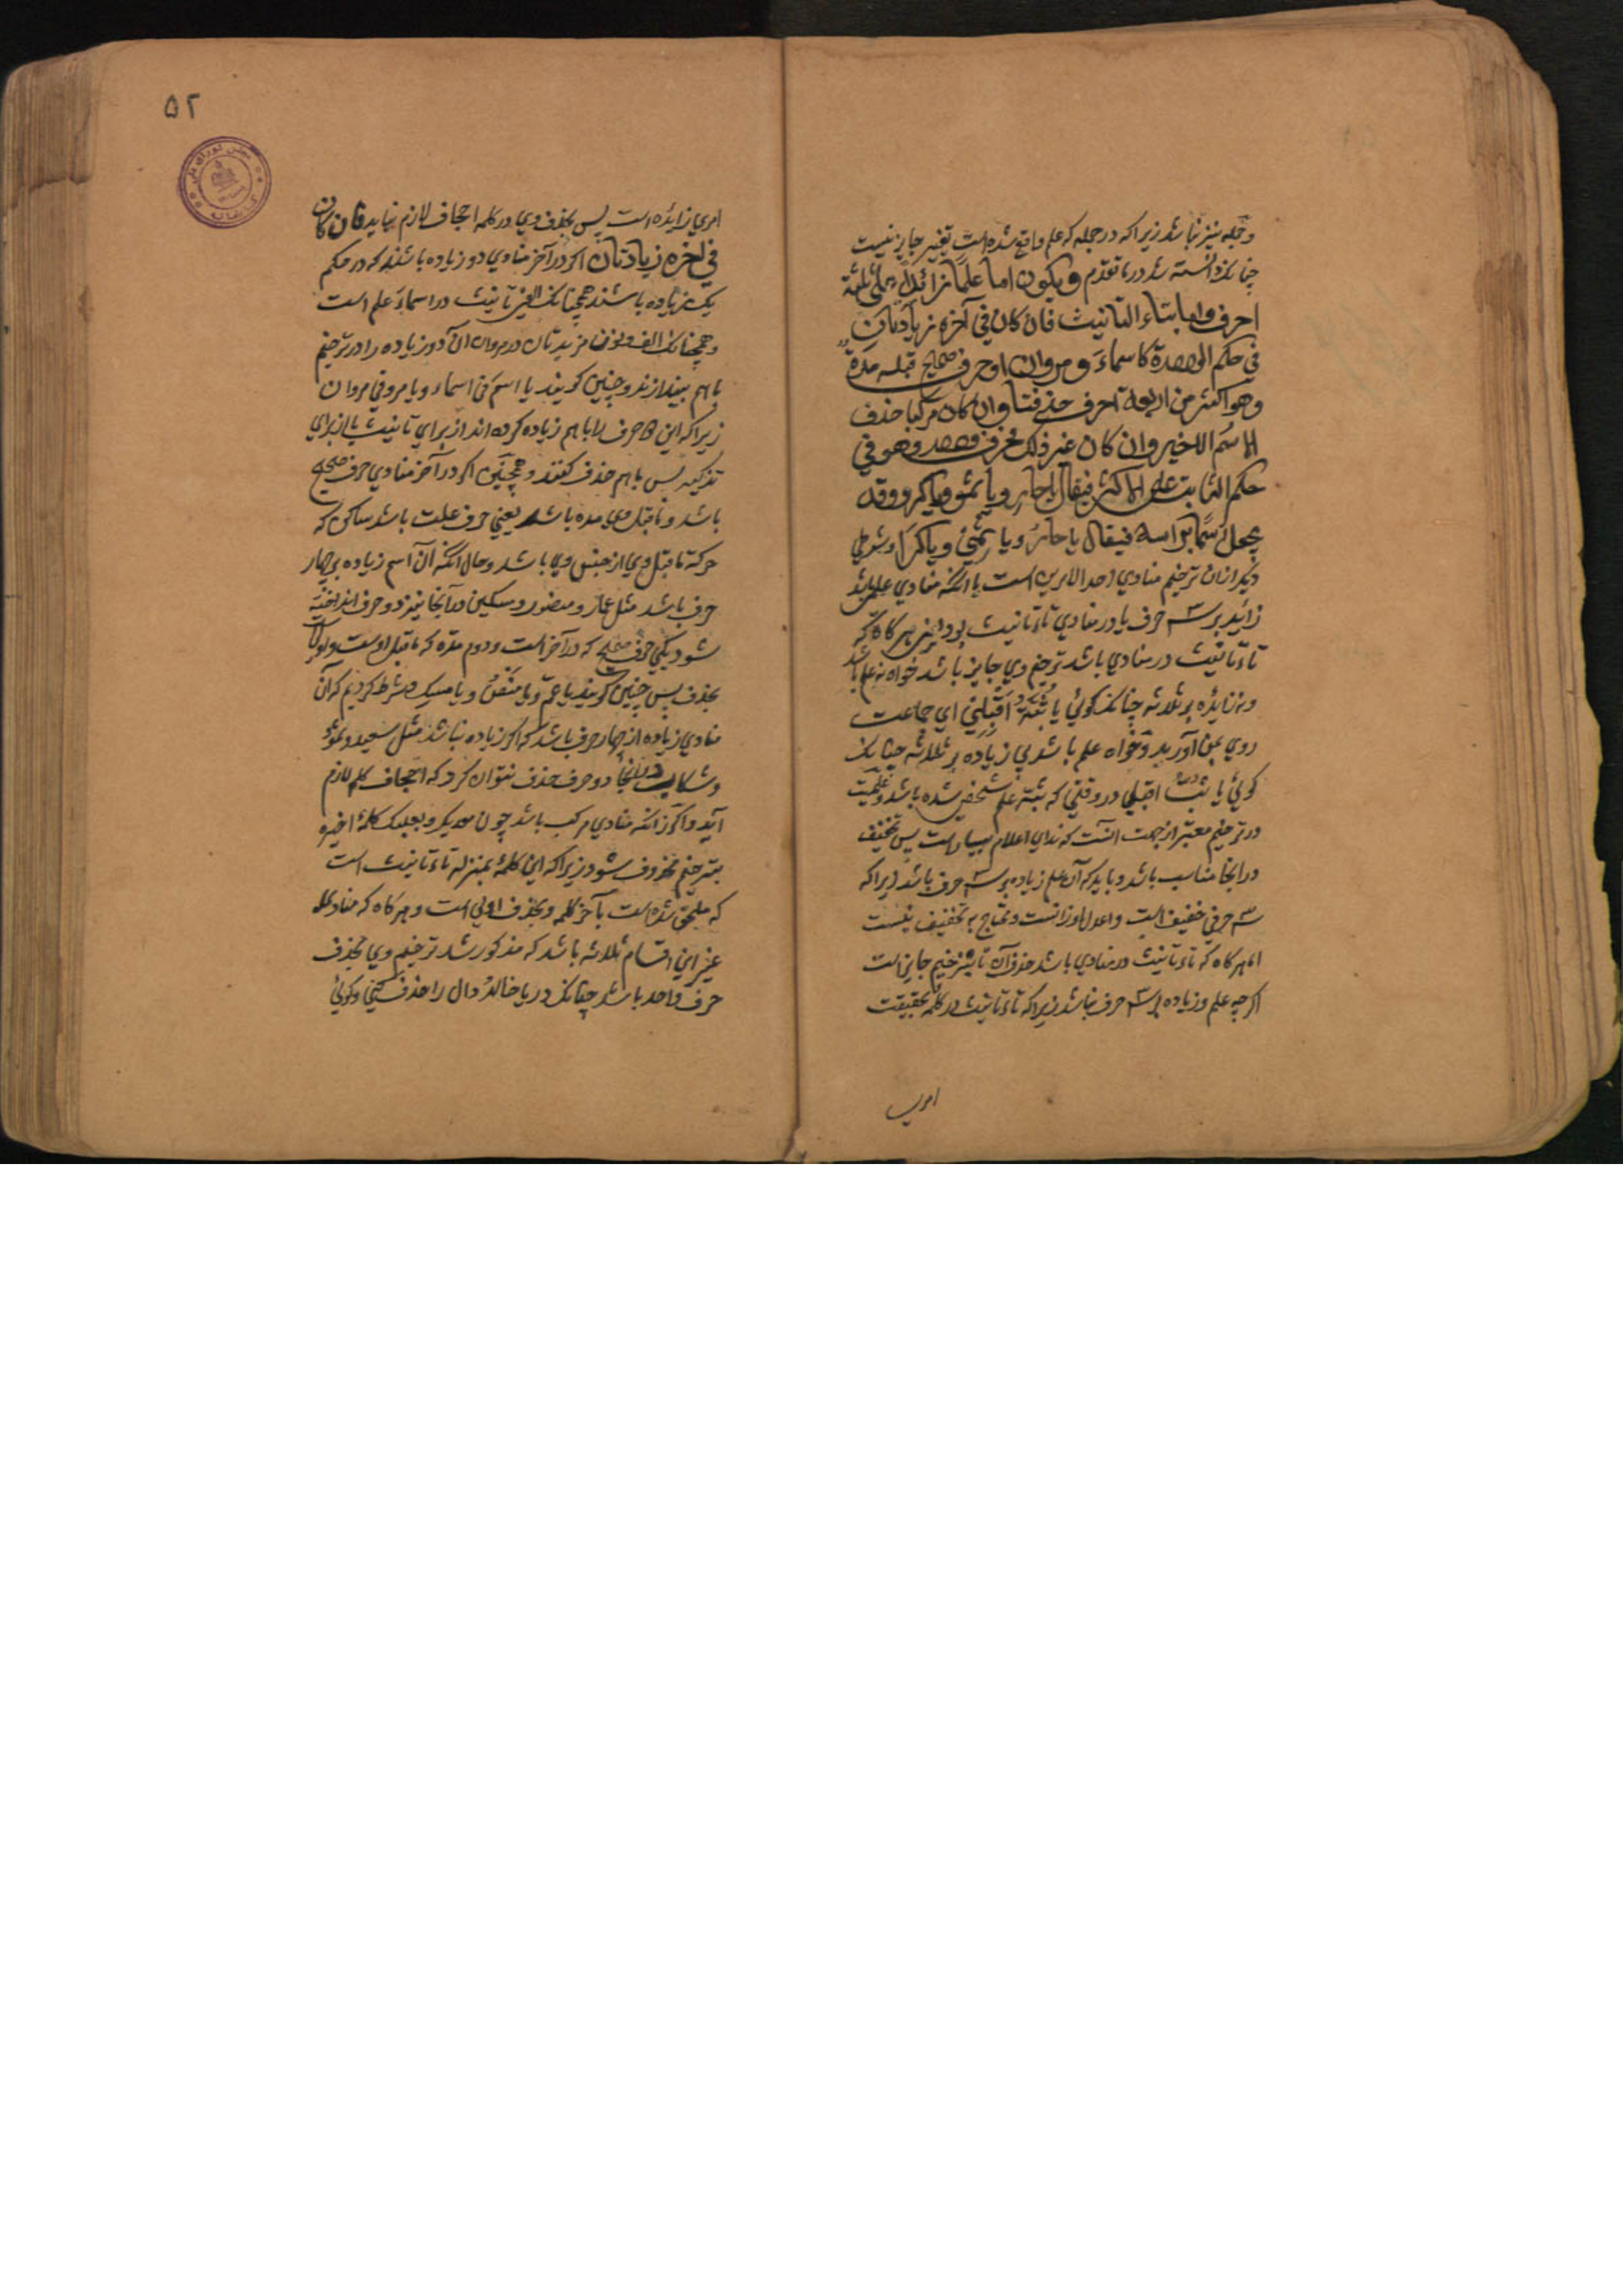 و جمله نیز نباشد زیرا که در جمله که علم واقع شده است تغییر جایز نیست
چنانک دانسته شد در ما تقدم و یکون اما علما زائدا علی ثلثة
احرف واما بتاء التانیث فان کان فی آخره زیادتان
فی حکم الواحدة کاسماء و مروان او حرف صحیح قبله مدة
وهو اکثر من اربعة احرف حذفتا وان کان مرکبا حذف
الاسم الاخیر وان کان غیر ذلک فحرف واحد وهو فی
حکم الثابت علی الاکثر فیقال یا حار و یا ثمو و یا کرو وقد
یجعل اسما براسه فیقال یا حار و یا ثمی و یا کرا و شرطی
دیگر از ان ترخیم منادی احد الامرین است یا انکه منادی علمی باشد
زاید بر سه حرف یا در منادی تاء تانیث بود یعنی هر گاه که
تاء تانیث در منادی باشد ترخیم وی جایز باشد خواه نه علم باشد
و نه زایده بر ثلاثه چنانک گوئی یا ثبة اقبلی ای جماعت
روی بمن آورید و خواه علم باشد بی زیاده بر ثلاثه چنانک
گوئی یا ثب اقبلی در وقتی که ثبة علم شخصی شده باشد و علمیت
در ترخیم معتبر از جهت آنست که ندای اعلام بسیار است پس تخفیف
در انجا مناسب باشد و باید که آن علم زیاده بر سه حرف باشد زیرا که
سه حرفی خفیف است و اعدل اوزانست و محتاج به تخفیف نیست
اما هر گاه که تاء تانیث در منادی باشد حذف آن تا بترخیم جایز است
اگر چه علم و زیاده بر سه حرف نباشد زیرا که تاء تانیث در کلمه بحقیقت
امری
۵۲
امری زایده است پس بحذف وی در کلمه اجحاف لازم نیاید فان کان
فی اخره زیادتان اگر در آخر منادی دو زیاده باشند که در حکم
یک زیاده باشند همچنانک الفین تانیث در اسماء علم است
و همچنانک الف و نون مزیدتان در مروان آن دو زیاده را در ترخیم
باهم بیندازند و چنین گویند یا اسم فی اسماء و یا مرو فی مروان
زیرا که این دو حرف را باهم زیاده کرده اند از برای تانیث یا از برای
تذکیر پس باهم حذف کنند و همچنین اگر در آخر منادی حرف صحیح
باشد و ماقبل وی مده باشد یعنی حرف علت باشد ساکن که
حرکة ماقبل وی از جنس وی باشد و حال انکه آن اسم زیاده بر چهار
حرف باشد مثل عمار و منصور و مسکین در آنجا نیز دو حرف انداخته
شود یکی حرف صحیح که در آخر است و دوم مده که ماقبل اوست
بحذف پس چنین گویند یا عم و یا منص و یا مسک و شرط کردیم که آن
منادی زیاده از چهار حرف باشد که اگر زیاده نباشد مثل سعید و ثمود
در انجا دو حرف حذف نتوان کرد که اجحاف کلمه لازم
آید و اگر زانکه منادی مرکب باشد چون معدیکرب و بعلبک کلمهٔ اخیره
بترخیم محذوف شود زیرا که این کلمه بمنزله تاء تانیث است
که ملحق شده است بآخر کلمه و بحذف اولی است و هر گاه که منادی
غیر این اقسام ثلاثه باشد که مذکور شد ترخیم وی بحذف
حرف واحد باشد چنانک در یا خالد دال را حذف کنی و گوئی